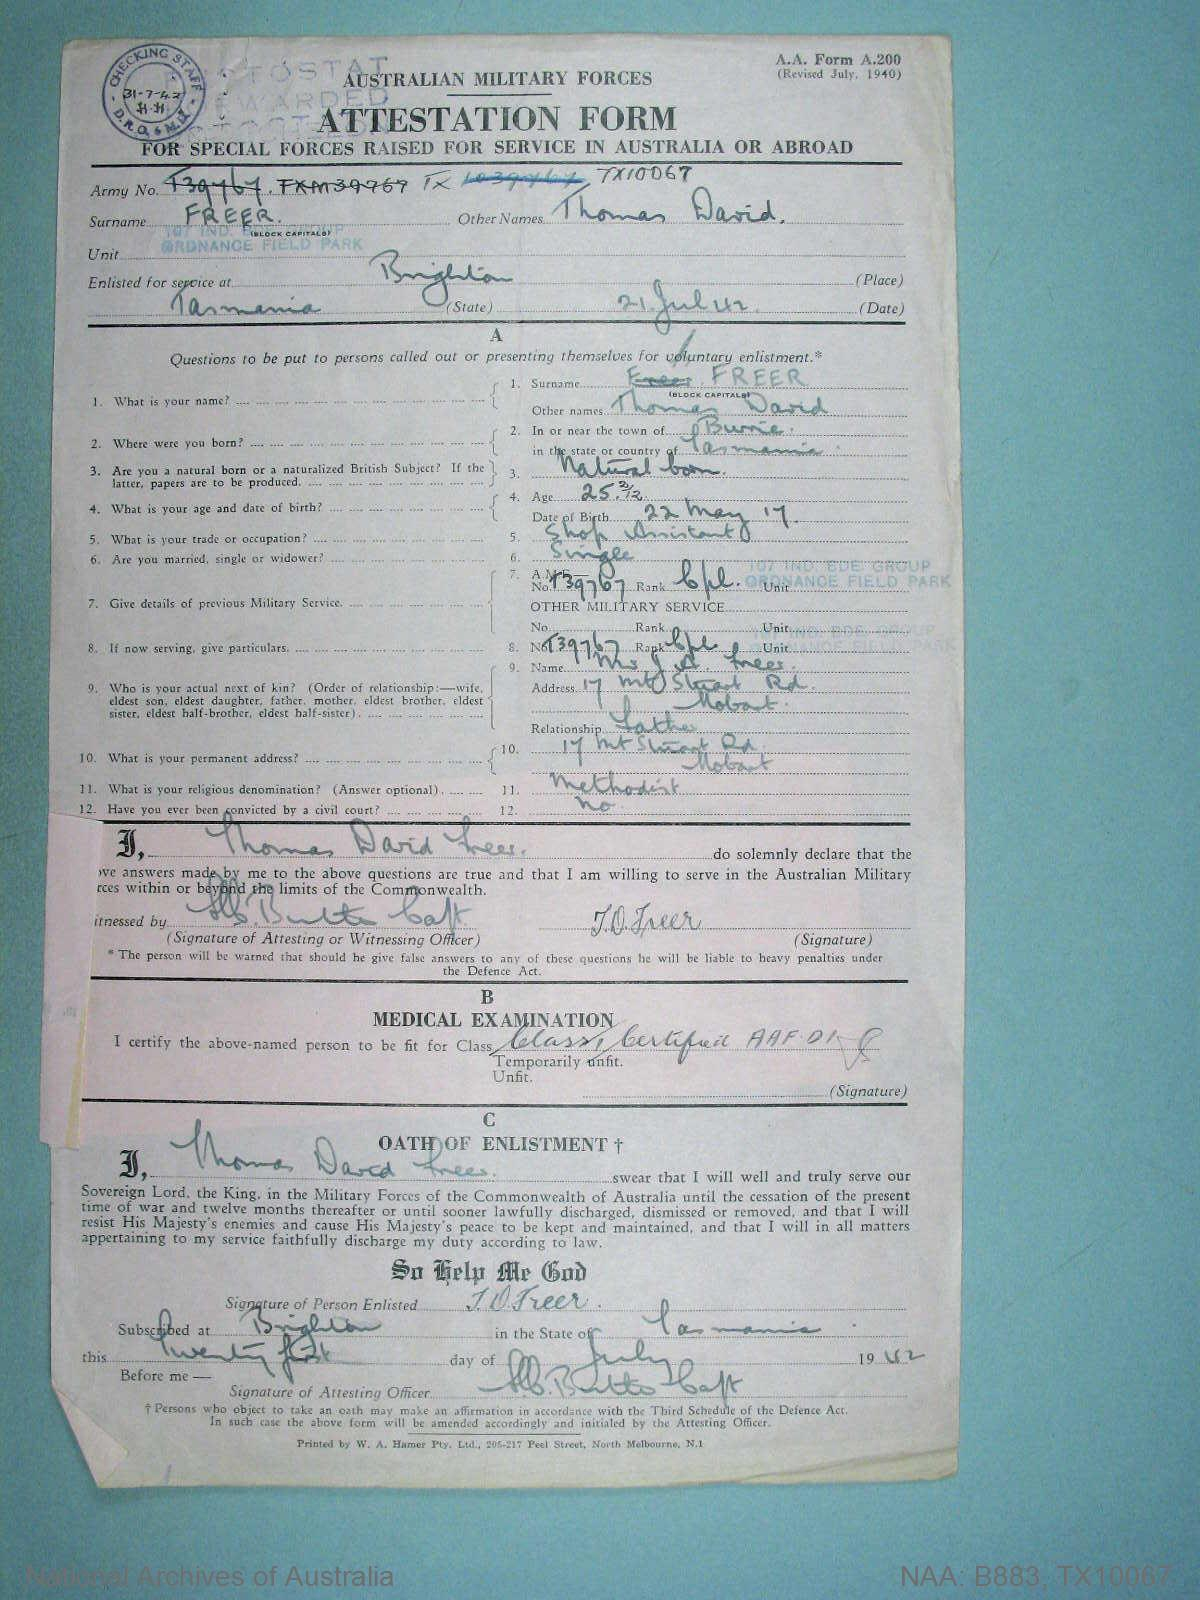 CHECKING STAFF
31-7-42
D.R.O. & M.D.
PHOTOSTAT
FORWARDED
AUSTRALIAN MILITARY FORCES
A.A. Form A.200
(Revised July, 1940)
ATTESTATION FORM
FOR SPECIAL FORCES RAISED FOR SERVICE IN AUSTRALIA OR ABROAD
Army No. T39767. TXM39767 TX 1039767 TX10067
Surname FREER. Other Names Thomas David.
(BLOCK CAPITALS)
107 IND. BDE GROUP
ORDNANCE FIELD PARK
Unit
Enlisted for service at Brighton (Place)
Tasmania (State) 21. Jul 42. (Date)
A
Questions to be put to persons called out or presenting themselves for voluntary enlistment.*
1. What is your name? 1. Surname Freer. FREER
(BLOCK CAPITALS)
Other names Thomas David
2. Where were you born? 2. In or near the town of Burnie.
in the state or country of Tasmania.
3. Are you a natural born or a naturalized British Subject? If the latter, papers are to be produced. 3. Natural born.
4. What is your age and date of birth? 4. Age 25 2/12.
Date of Birth 22 May 17.
5. What is your trade or occupation? 5. Shop Assistant
6. Are you married, single or widower? 6. Single
7. Give details of previous Military Service. 7. A.M.F.—
No. T39767 Rank Cpl. Unit 107 IND. BDE GROUP
ORDNANCE FIELD PARK
OTHER MILITARY SERVICE
No. Rank Unit
8. If now serving, give particulars. 8. No. T39767 Rank Cpl Unit 107 IND. BDE. GROUP
ORDNANCE FIELD PARK
9. Who is your actual next of kin? (Order of relationship:—wife, eldest son, eldest daughter, father, mother, eldest brother, eldest sister, eldest half-brother, eldest half-sister). 9. Name Mr J. A. Freer.
Address 17 Mt Stuart Rd.
Hobart.
Relationship Father
10. What is your permanent address? 10. 17 Mt Stuart Rd
Hobart
11. What is your religious denomination? (Answer optional). 11. Methodist
12. Have you ever been convicted by a civil court? 12. No.
I, Thomas David Freer. do solemnly declare that the
ove answers made by me to the above questions are true and that I am willing to serve in the Australian Military
rces within or beyond the limits of the Commonwealth.
itnessed by Butte Capt. T.D.Freer
(Signature of Attesting or Witnessing Officer) (Signature)
* The person will be warned that should he give false answers to any of these questions he will be liable to heavy penalties under
the Defence Act.
B
MEDICAL EXAMINATION
I certify the above-named person to be fit for Class Class 1 Certified AAF.D1
Temporarily unfit.
Unfit.
(Signature)
C
OATH OF ENLISTMENT †
I, Thomas David Freer. swear that I will well and truly serve our
Sovereign Lord, the King, in the Military Forces of the Commonwealth of Australia until the cessation of the present
time of war and twelve months thereafter or until sooner lawfully discharged, dismissed or removed, and that I will
resist His Majesty's enemies and cause His Majesty's peace to be kept and maintained, and that I will in all matters
appertaining to my service faithfully discharge my duty according to law.
So Help Me God
Signature of Person Enlisted T.D.Freer.
Subscribed at Brighton in the State of Tasmania.
this Twenty first day of July 1942
Before me —
Signature of Attesting Officer Butte Capt
† Persons who object to take an oath may make an affirmation in accordance with the Third Schedule of the Defence Act.
In such case the above form will be amended accordingly and initialed by the Attesting Officer.
Printed by W. A. Hamer Pty. Ltd., 205-217 Peel Street, North Melbourne, N.1
National Archives of Australia
NAA: B883, TX10067